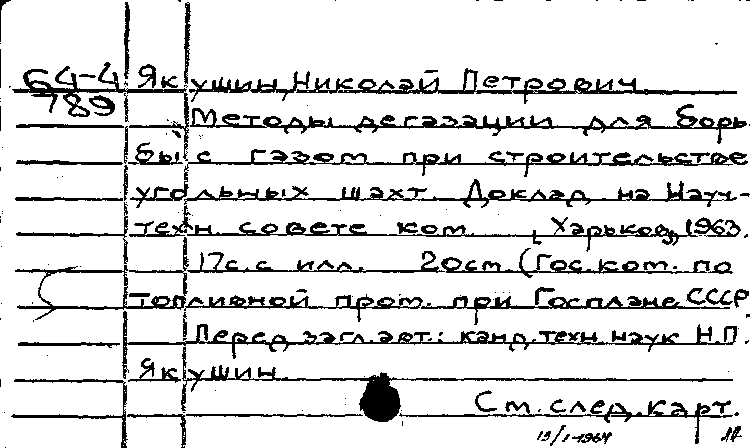 64-4 Якушин, Николай Петрович
789 Методы дегазации для борь-
бы с газом при строительстве
угольных шахт. Доклад на Науч-
техн. совете ком. [Харьков], 1963.
17с. с илл. 20см. (Гос. ком. по
топливной пром. при Госплане СССР
Перед загл. авт.: канд. техн. наук Н.П.
Якушин.
См. след. карт.
13/1-1964